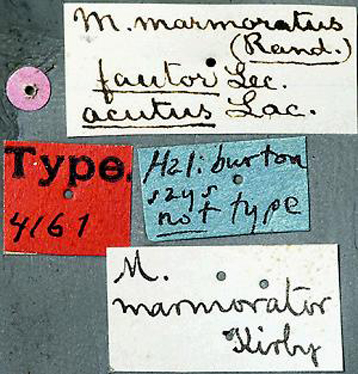 M. marmoratus
(Rand.)
fautor Lec.
acutus Lac.
Type.
4161
Haliburton
says
not type
M.
marmorator
Kirby